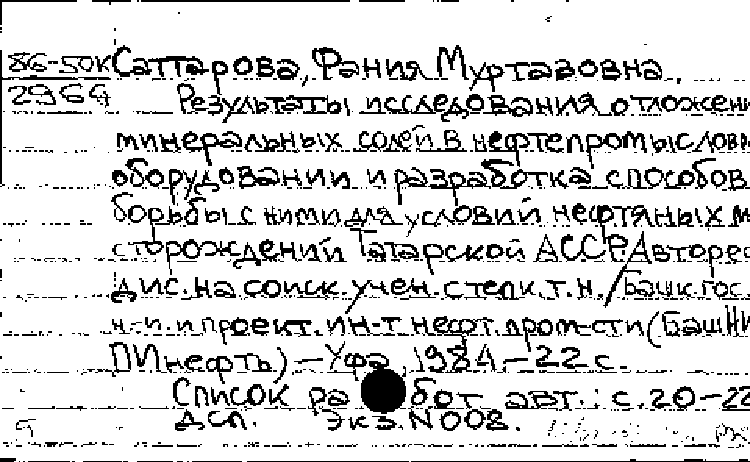 86-50К Саттарова, Рания Муртазовна.
2964 Результаты исследования отложени
минеральных солей в нефтепромыслов
оборудовании и разработка способов
борьбы с ними для условий нефтяных м
сторождений Татарской АССР. Авторе
дис. на соиск. учен. степ. к. т. н. / Башк. гос.
н-и. и проект. ин-т нефт. пром-сти (БашНИ
ПИнефть) — Уфа, 1984. — 22 с.
Список работ авт.: с. 20-22
ДСП. Экз. N 008.